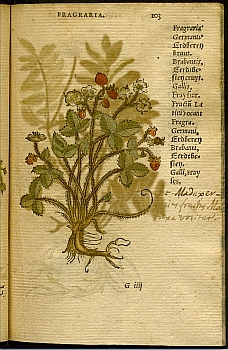 FRAGRARIA. 103
Fragraria
Germani.
Erdberen
kraut.
Brabantis,
Eerdtbe-
sien cruyt.
Gallis,
Frayfier.
Fructū La
tini vocant
Fragra.
Germani,
Erdberen
Brabanti,
Eerdtbe-
sien.
Galli, fray
ses.
G iiij